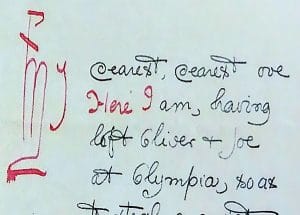 My
dearest, dearest ove
Here I am, having
left Oliver & Joe
at Olympia, so as